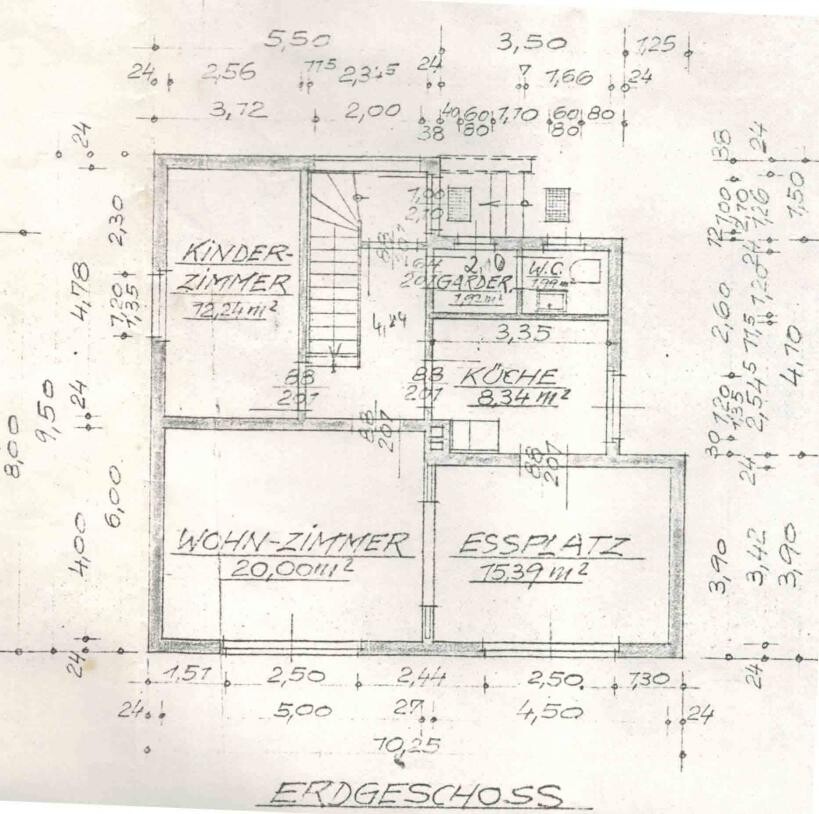 5,50 3,50 1,25
24 2,56 11⁵ 2,31⁵ 24 7 1,66 24
3,72 2,00 38 40 60/80 1,10 60/80 80
24 38 24
2,30 1,00 2,10 12 1,00 2,10 1,26 1,50
KINDER-
ZIMMER
12,24 m²
88/201
2,10
GARDER.
1,92 m²
W.C.
1,99 m²
4,78 1,20 1,35
4,84
3,35
24 1,20 11,5 2,60 4,70
88/201
88/201
KÜCHE
8,34 m²
8,00 9,50 24
88/201
88/201
30 1,20 1,35 2,54⁵ 24
6,00
4,00
WOHN-ZIMMER
20,00 m²
ESSPLATZ
15,39 m²
3,90 3,42 3,90
24 24
1,51 2,50 2,44 2,50 1,30
24 5,00 27 4,50 24
10,25
ERDGESCHOSS